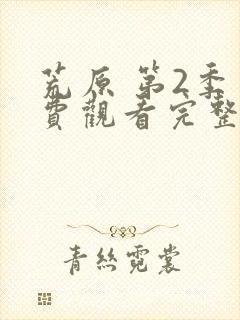 荒原 第2季
費觀看完整
青絲霓裳